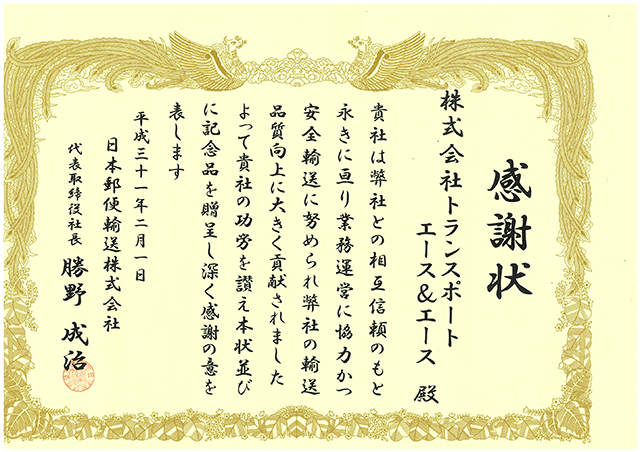 感謝状
株式会社トランスポート
エース&エース 殿
貴社は弊社との相互信頼のもと
永きに亘り業務運営に協力かつ
安全輸送に努められ弊社の輸送
品質向上に大きく貢献されました
よって貴社の功労を讃え本状並び
に記念品を贈呈し深く感謝の意を
表します
平成三十一年二月一日
日本郵便輸送株式会社
代表取締役社長 勝野 成治